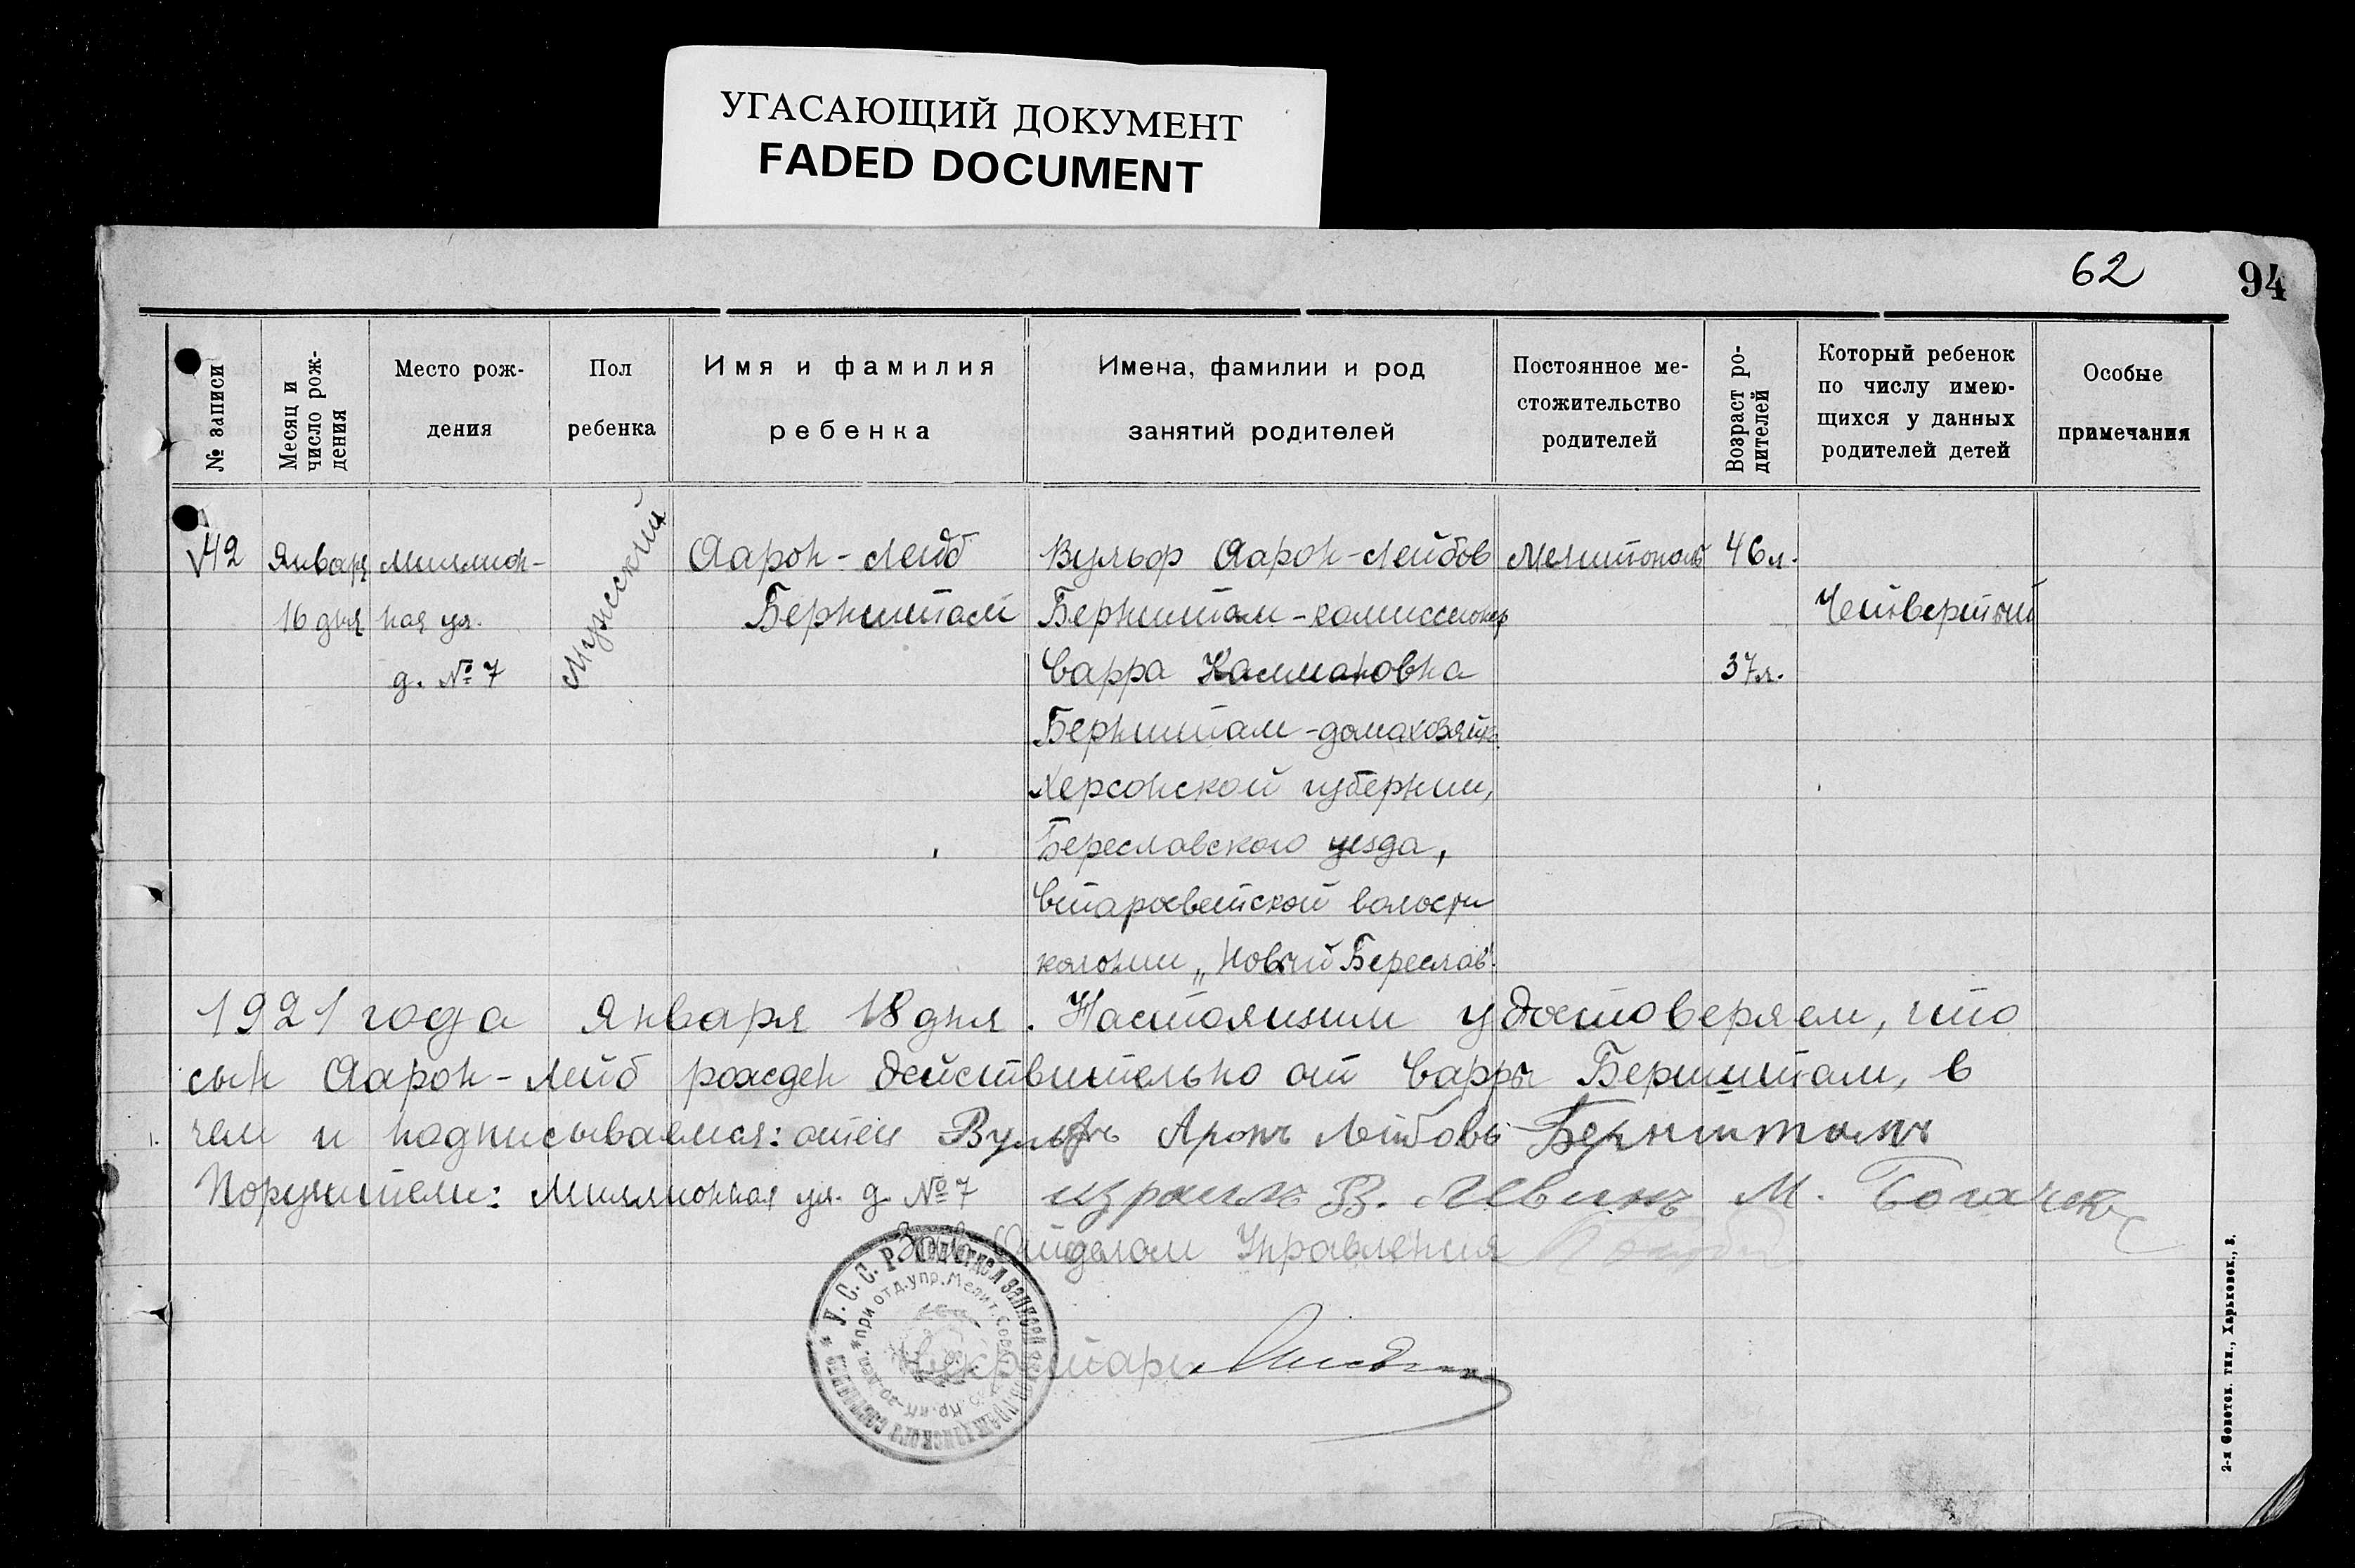 УГАСАЮЩИЙ ДОКУМЕНТ
FADED DOCUMENT
62
94
№ записи
Месяц и число рож-дения
Место рож-
дения
Пол
ребенка
Имя и фамилия
ребенка
Имена, фамилии и род
занятий родителей
Постоянное ме-
стожительство
родителей
Возраст ро-дителей
Который ребенок
по числу имею-
щихся у данных
родителей детей
Особые
примечания
42
Января
16 дня
Миллион-
ная ул.
д. № 7
Мужский
Аарон-Лейб
Бернштам
Вульф Аарон-Лейбов
Бернштам-комиссионер
Сарра Калмановна
Бернштам-домахозяйка
Херсонской губернии,
Береславского уезда,
Старосветской волости
колонии „Новый Береслав".
Мелитополь
46 л.
37 л.
Четвертый
1921 года Января 18 дня. Настоящим удостоверяем, что
сын Аарон-Лейб рожден действительно от Сарры Бернштам, в
чем и подписываемся: отец Вульфъ Аронъ Лейбовъ Бернштамъ
Поручители: Миллионная ул. д. № 7 Израиль В. Левинъ М.
Зав. Отделом Управления
Секретарь
У. С. С. Р. Подотдел записей гражданского состояния
при отд. упр. Мелит.
2-я Советск. тип., Харьковск., 3.